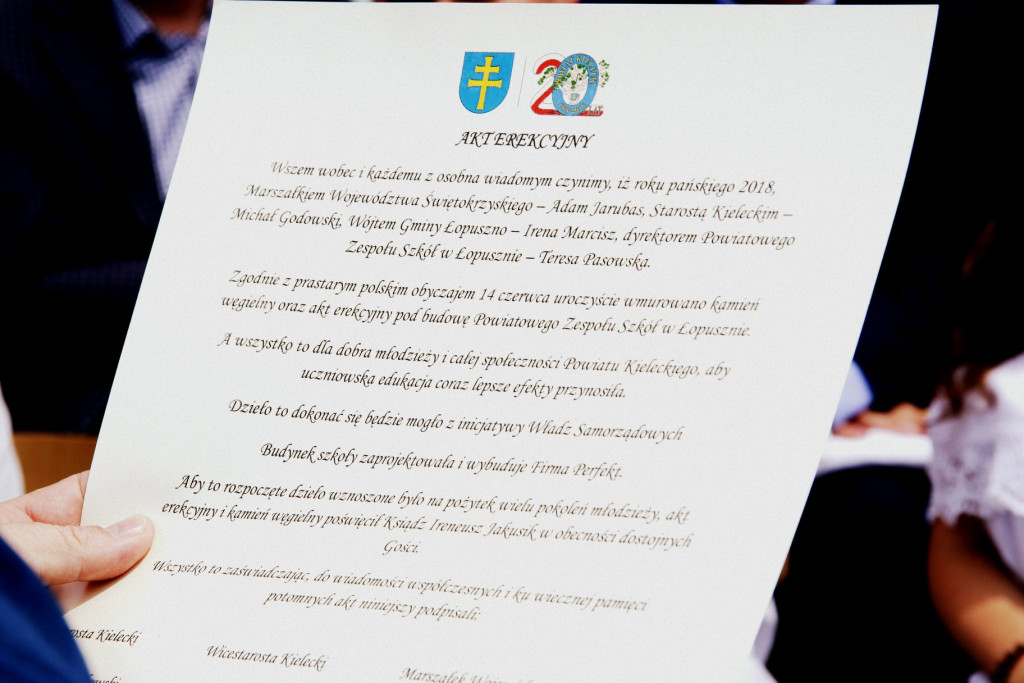 20 LAT
AKT EREKCYJNY
Wszem wobec i każdemu z osobna wiadomym czynimy, iż roku pańskiego 2018,
Marszałkiem Województwa Świętokrzyskiego – Adam Jarubas, Starostą Kieleckim –
Michał Godowski, Wójtem Gminy Łopuszno – Irena Marcisz, dyrektorem Powiatowego
Zespołu Szkół w Łopusznie – Teresa Pasowska.
Zgodnie z prastarym polskim obyczajem 14 czerwca uroczyście wmurowano kamień
węgielny oraz akt erekcyjny pod budowę Powiatowego Zespołu Szkół w Łopusznie.
A wszystko to dla dobra młodzieży i całej społeczności Powiatu Kieleckiego, aby
uczniowska edukacja coraz lepsze efekty przynosiła.
Dzieło to dokonać się będzie mogło z inicjatywy Władz Samorządowych
Budynek szkoły zaprojektowała i wybuduje Firma Perfekt.
Aby to rozpoczęte dzieło wznoszone było na pożytek wielu pokoleń młodzieży, akt
erekcyjny i kamień węgielny poświęcił Ksiądz Ireneusz Jakusik w obecności dostojnych
Gości.
Wszystko to zaświadczając, do wiadomości współczesnych i ku wiecznej pamięci
potomnych akt niniejszy podpisali:
rosta Kielecki
Wicestarosta Kielecki
Marszałek